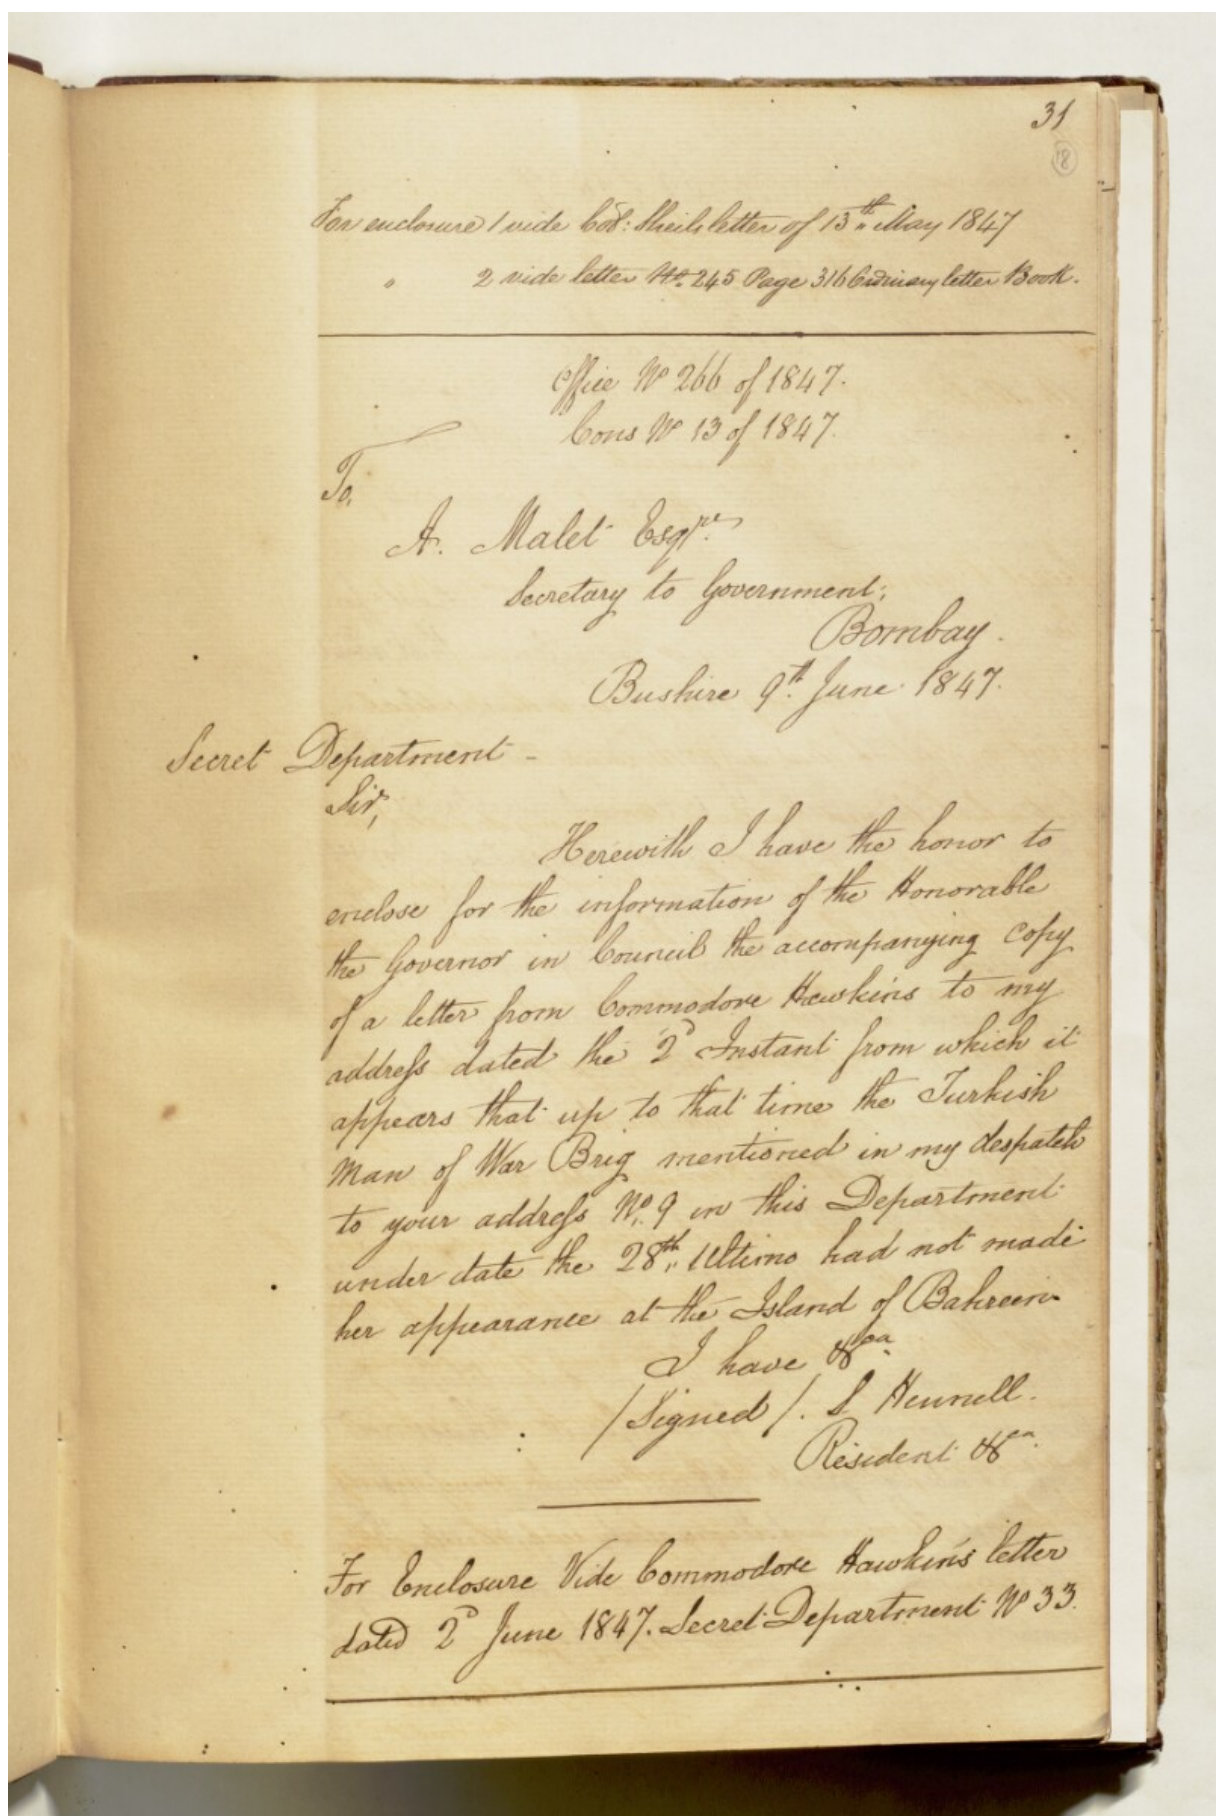 31
18
For enclosure 1 vide Col: Sheils letter of 13th May 1847
" 2 vide letter No. 245 Page 316 Ordinary letter Book.
Office No 266 of 1847.
Cons No 13 of 1847.
To,
A. Malet Esqre.
Secretary to Government,
Bombay.
Bushire 9th. June 1847.
Secret Department -
Sir,
Herewith I have the honor to
enclose for the information of the Honorable
the Governor in Council the accompanying copy
of a letter from Commodore Hawkins to my
addreſs dated the 2d Instant from which it
appears that up to that time the Turkish
Man of War Brig mentioned in my despatch
to your addreſs No. 9 in this Department
under date the 28th. Ultimo had not made
her appearance at the Island of Bahrein
I have &ca.
/Signed/. S Hennell.
Resident &ca.
For Enclosure Vide Commodore Hawkin's letter
dated 2d June 1847. Secret Department No 33.